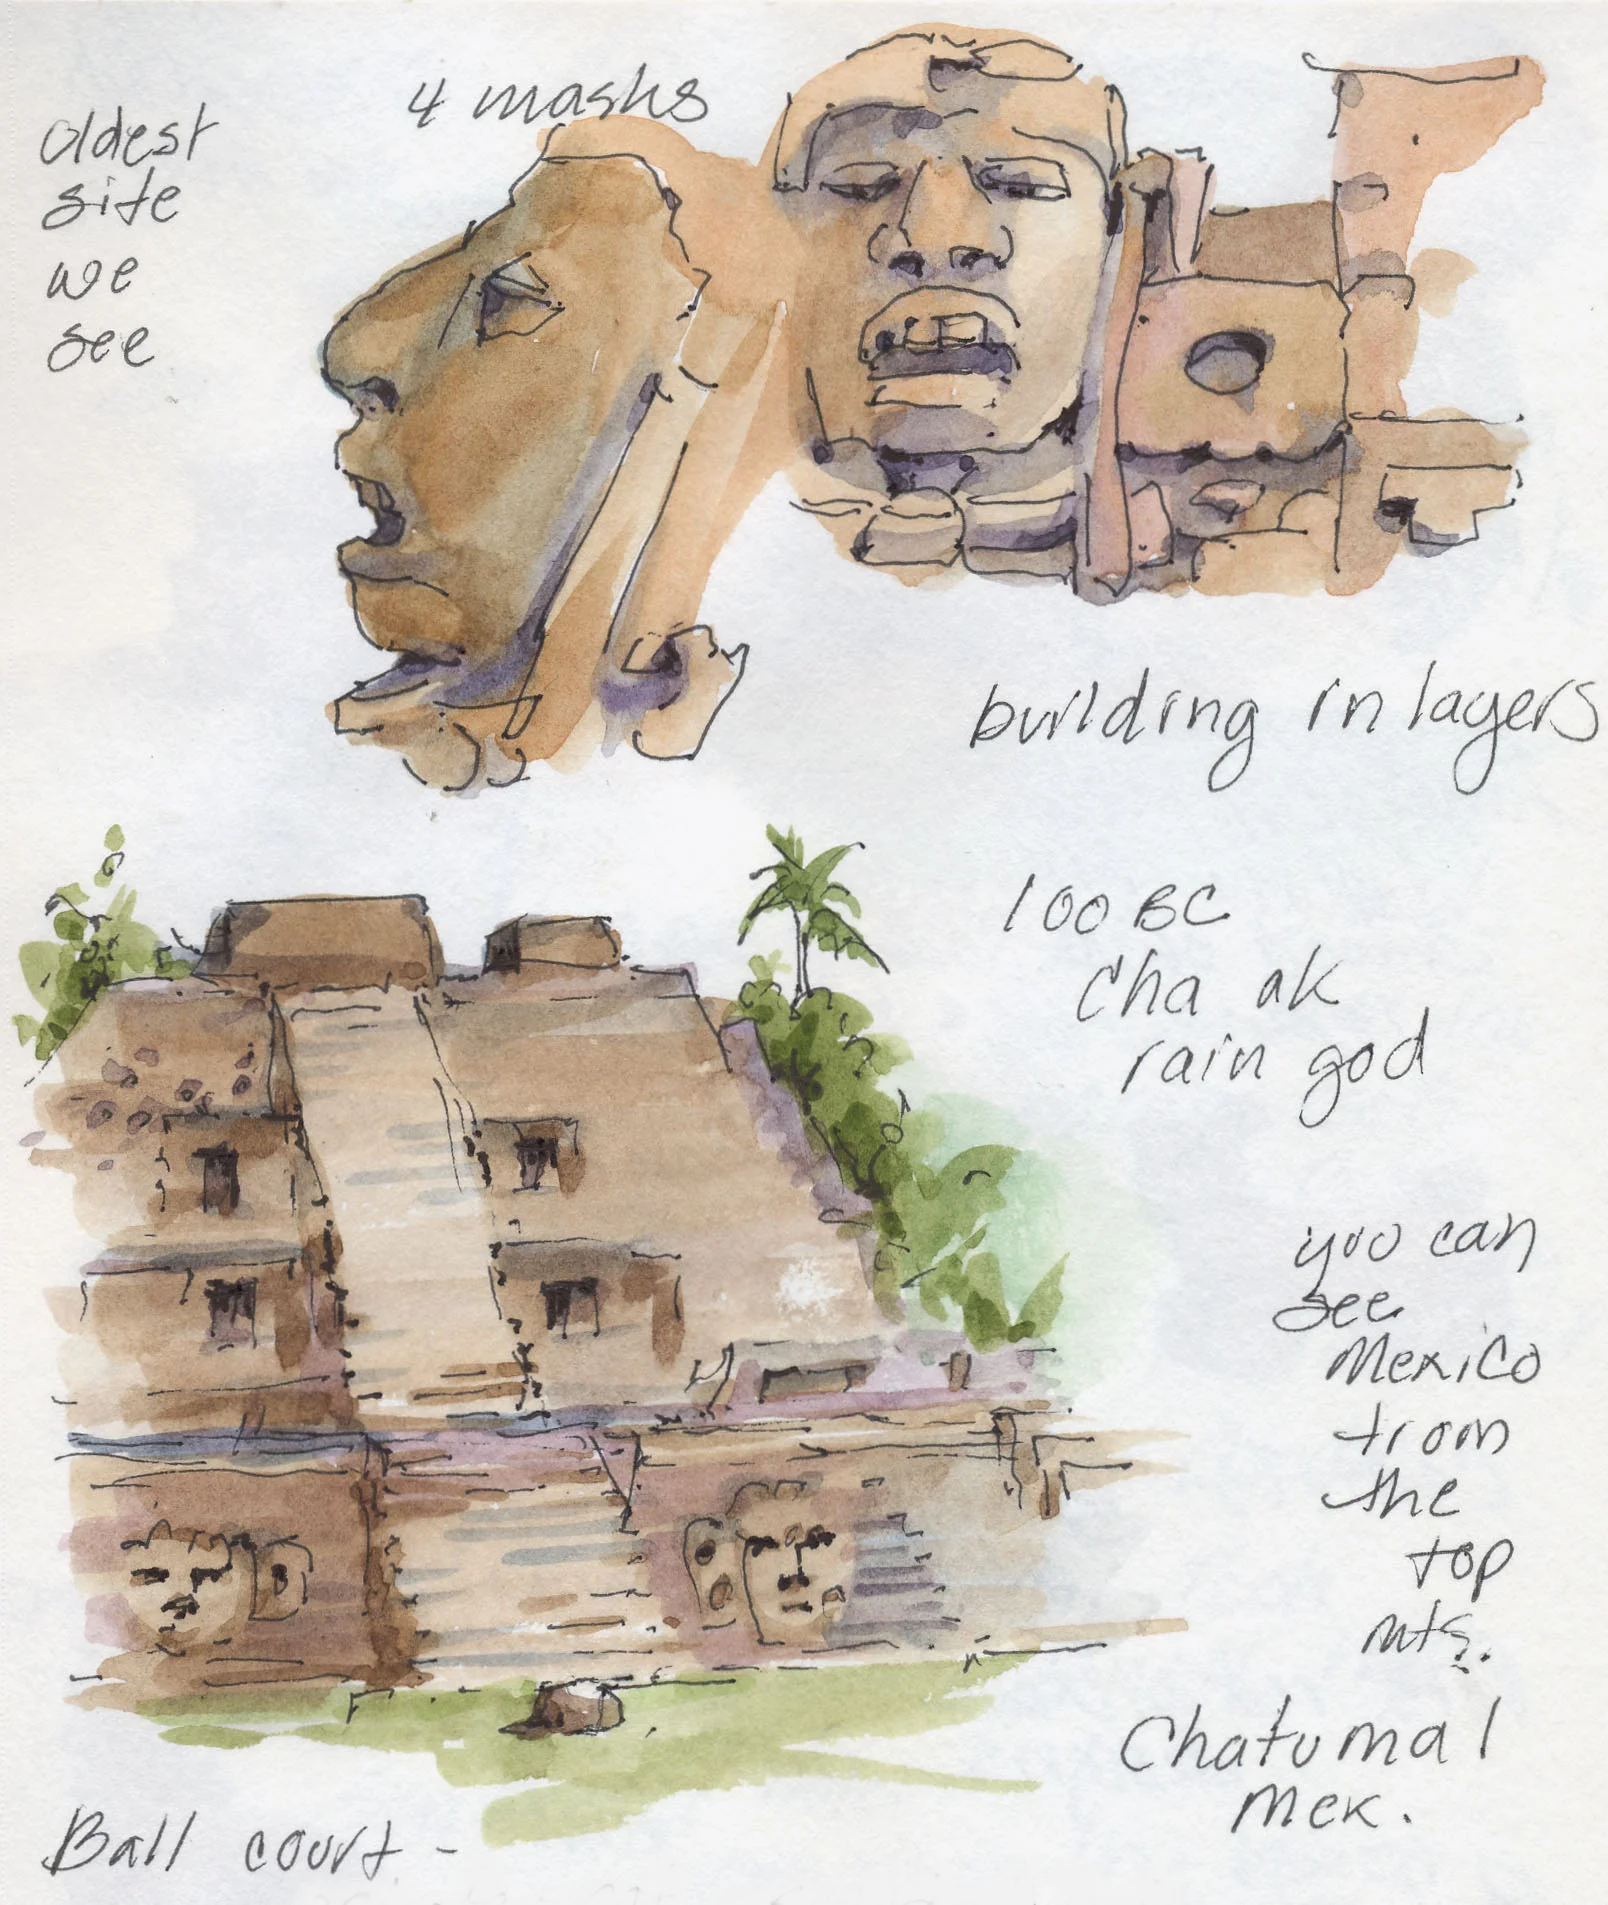 4 masks
oldest
site
we
see
building in layers
100 BC
Cha ak
rain god
you can
see
Mexico
from
the
top
mts.
Chatumal
Mex.
Ball court -